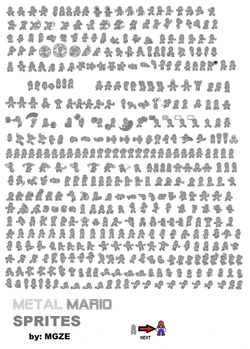 METAL MARIO
SPRITES
by: MGZE
NEXT